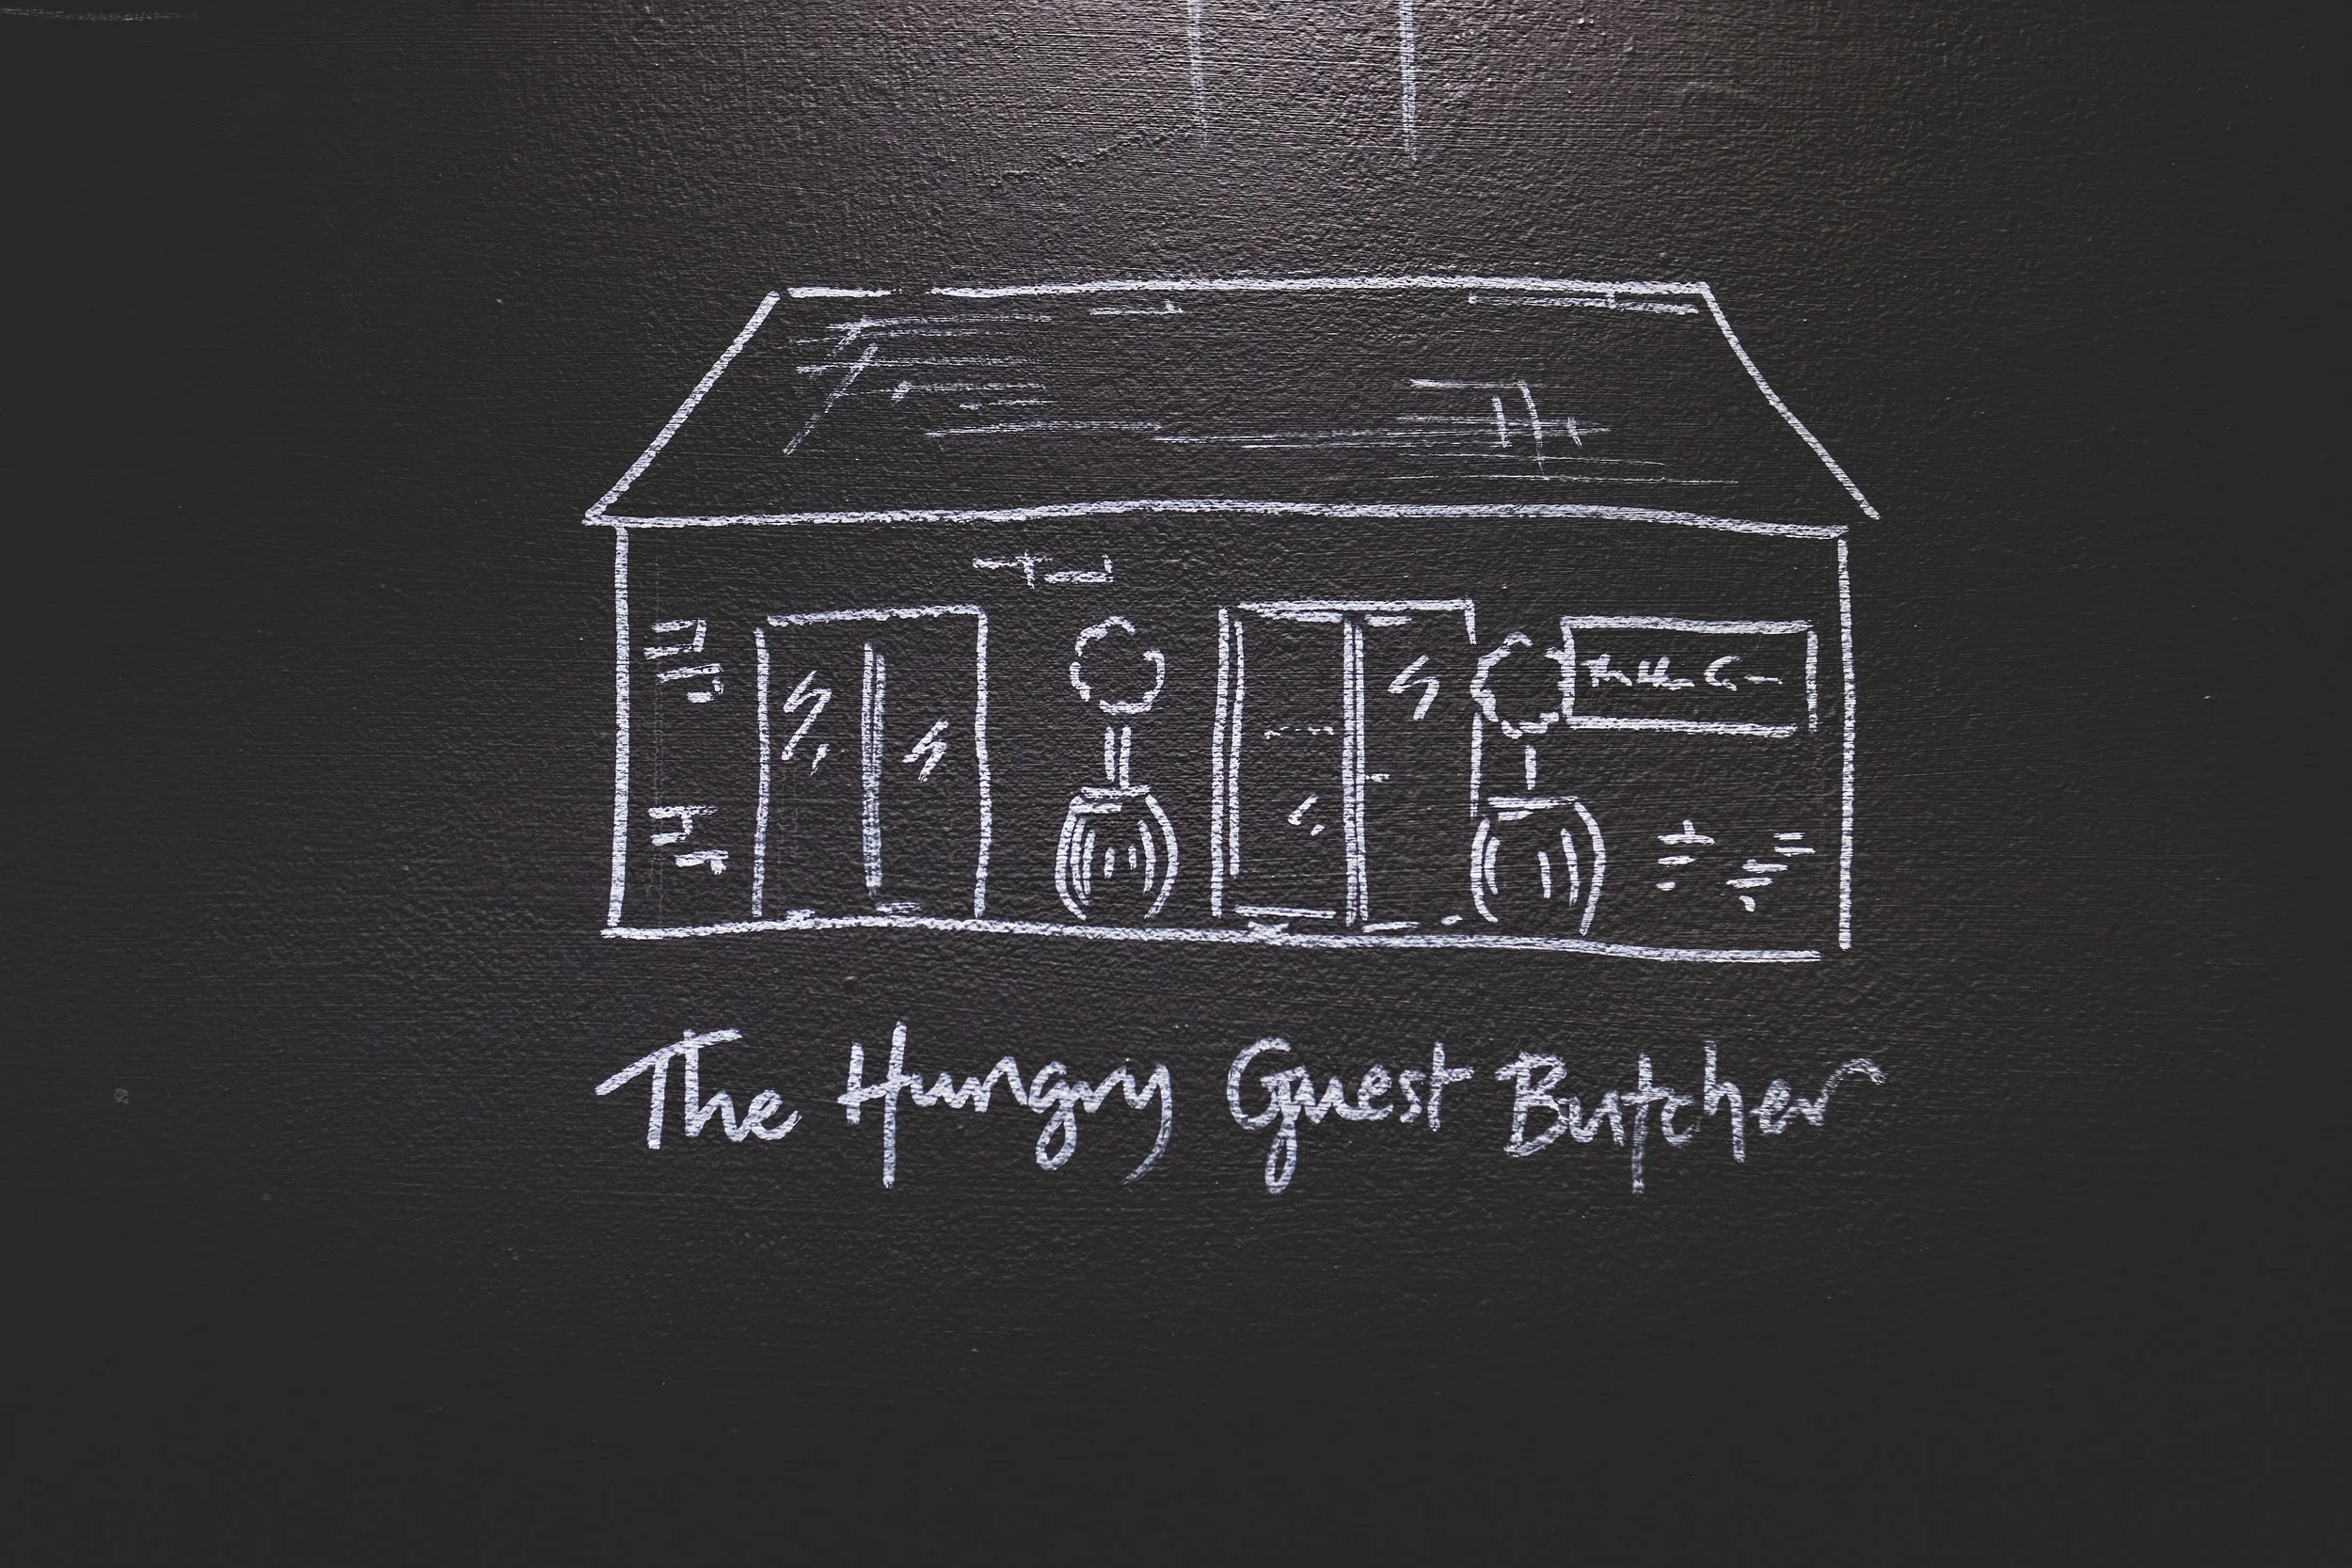 The Hungry Guest Butcher